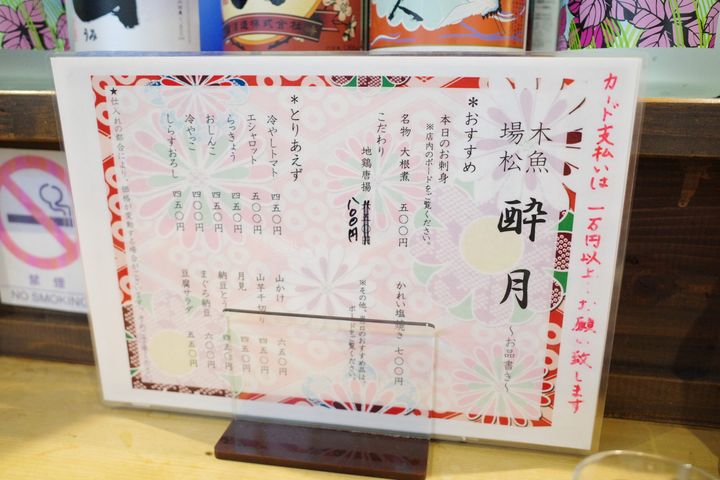 カード支払いは一万円以上…お願い致します
木魚
場松
酔月
～お品書き～
*おすすめ
本日のお刺身
※店内のボードをご覧ください。
名物 大根煮 五〇〇円
かれい塩焼き 七〇〇円
こだわり
地鶏唐揚
八〇〇円
ボードをご覧ください。
*とりあえず
冷やしトマト 四五〇円
エシャロット 五〇〇円
らっきょう 四五〇円
おしんこ 四五〇円
冷やっこ 四〇〇円
しらすおろし 四五〇円
山かけ 六五〇円
山芋千切り 四五〇円
月見
納豆
まぐろ納豆 六〇〇円
豆腐サラダ 五五〇円
★仕入れの都合により、価格が変動する場合が
禁煙
NO SMOKING
うみ